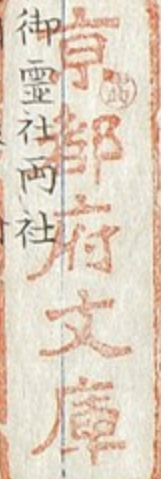 京都府文庫
御霊社両社